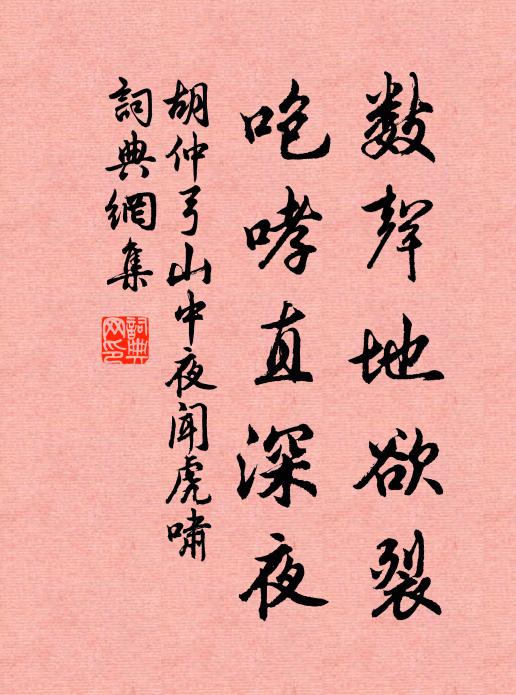 數聲地欲裂
咆哮直深夜
胡仲弓山中夜聞虎嘯
詞典網集
詞典
网印